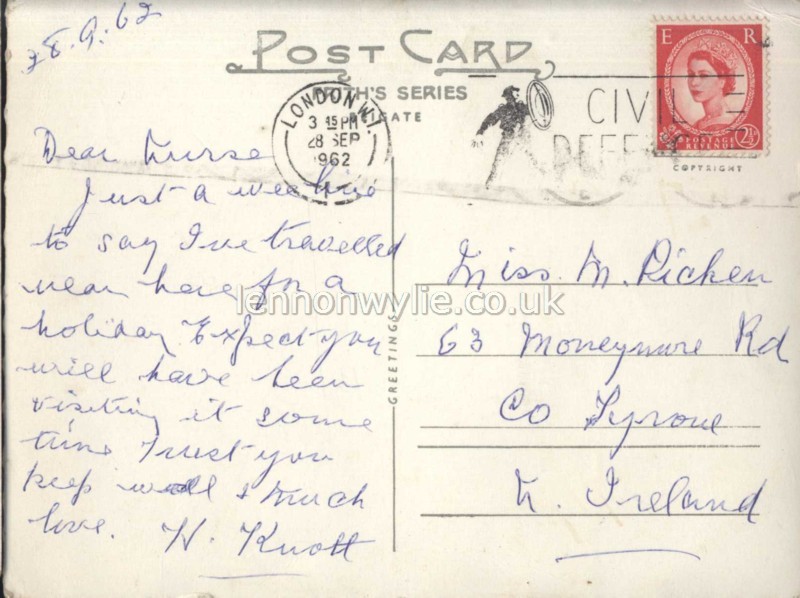 28.9.62
POST CARD
FRITH'S SERIES
REIGATE
LONDON W.1
3 15 PM
28 SEP
1962
CIVIL
DEFENCE
E R
POSTAGE
REVENUE
2½
COPYRIGHT
Dear Nurse
Just a wee line
to say I've travelled
near here for a
holiday Expect you
will have been
visiting it some
time Trust you
keep well & much
love.
N. Knott
GREETINGS
lennonwylie.co.uk
Miss. M. Picken
63 Moneymore Rd
Co Tyrone
N. Ireland